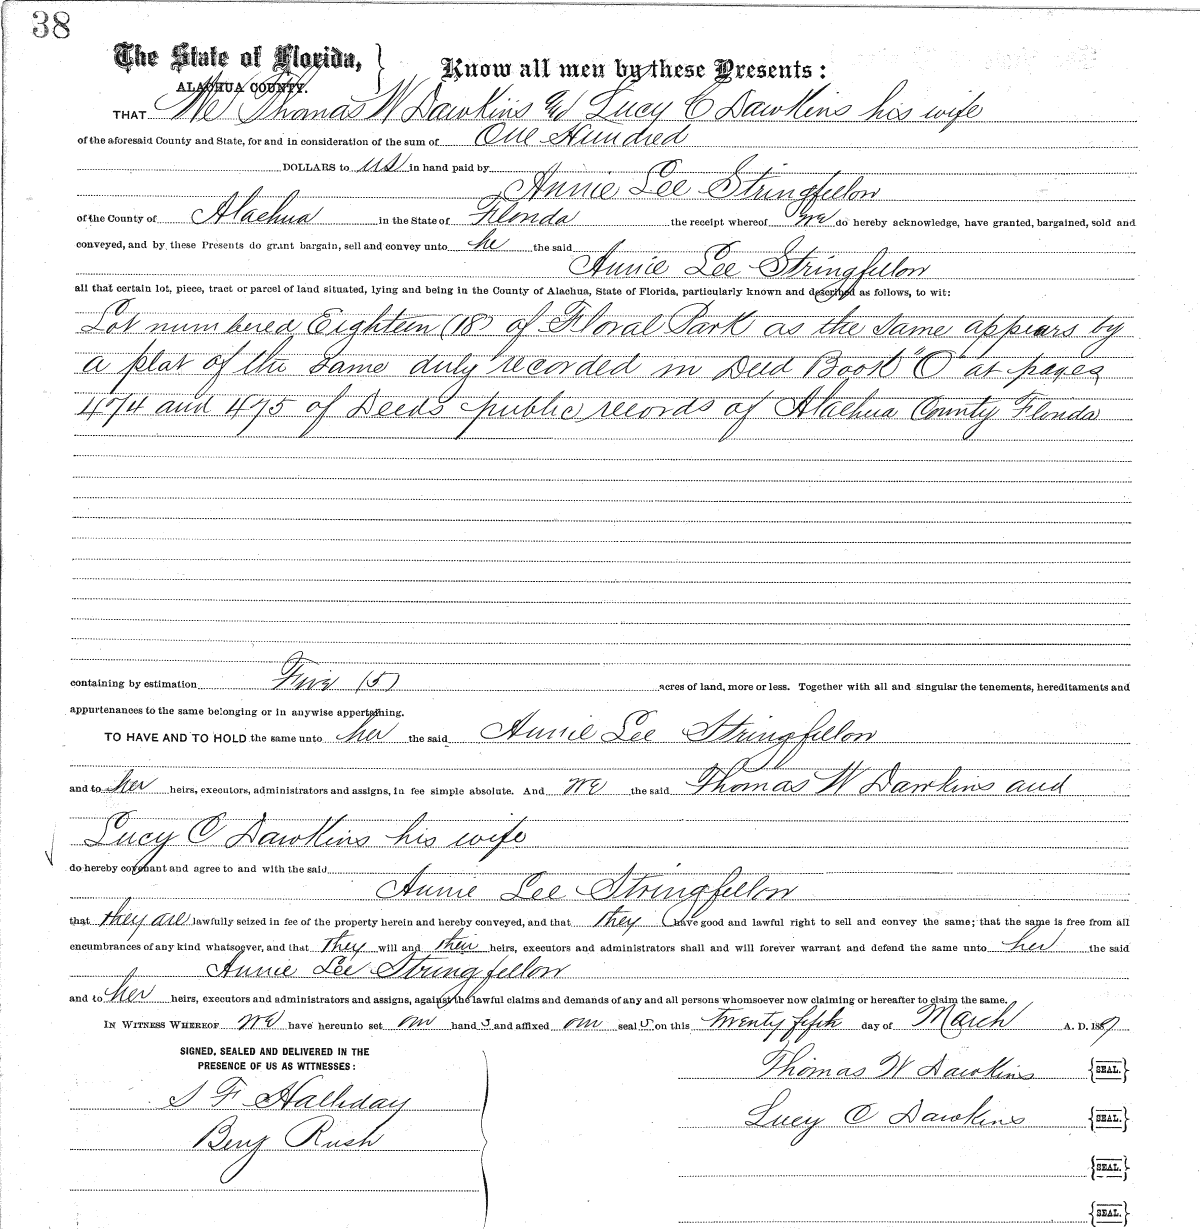 38
The State of Florida, } Know all men by these Presents:
ALACHUA COUNTY.
THAT We Thomas W Dawkins and Lucy C Dawkins his wife
of the aforesaid County and State, for and in consideration of the sum of One Hundred
DOLLARS to us in hand paid by
Annie Lee Stringfellow
of the County of Alachua in the State of Florida the receipt whereof we do hereby acknowledge, have granted, bargained, sold and
conveyed, and by these Presents do grant bargain, sell and convey unto he the said
Annie Lee Stringfellow
all that certain lot, piece, tract or parcel of land situated, lying and being in the County of Alachua, State of Florida, particularly known and described as follows, to wit:
Lot numbered Eighteen (18) of Floral Park as the same appears by
a plat of the same duly recorded in Deed Book "O" at pages
474 and 475 of Deeds public records of Alachua County Florida
containing by estimation Five (5) acres of land, more or less. Together with all and singular the tenements, hereditaments and
appurtenances to the same belonging or in anywise appertaining.
TO HAVE AND TO HOLD the same unto her the said Annie Lee Stringfellow
and to her heirs, executors, administrators and assigns, in fee simple absolute. And we the said Thomas W Dawkins and
Lucy C Dawkins his wife
do hereby covenant and agree to and with the said
Annie Lee Stringfellow
that they are lawfully seized in fee of the property herein and hereby conveyed, and that they have good and lawful right to sell and convey the same; that the same is free from all
encumbrances of any kind whatsoever, and that they will and their heirs, executors and administrators shall and will forever warrant and defend the same unto her the said
Annie Lee Stringfellow
and to her heirs, executors and administrators and assigns, against the lawful claims and demands of any and all persons whomsoever now claiming or hereafter to claim the same.
IN WITNESS WHEREOF we have hereunto set our hands and affixed our seals on this twenty fifth day of March A. D. 1889
SIGNED, SEALED AND DELIVERED IN THE
PRESENCE OF US AS WITNESSES:
S F Halliday
Benj Rush
Thomas W Dawkins {SEAL.}
Lucy C Dawkins {SEAL.}
{SEAL.}
{SEAL.}